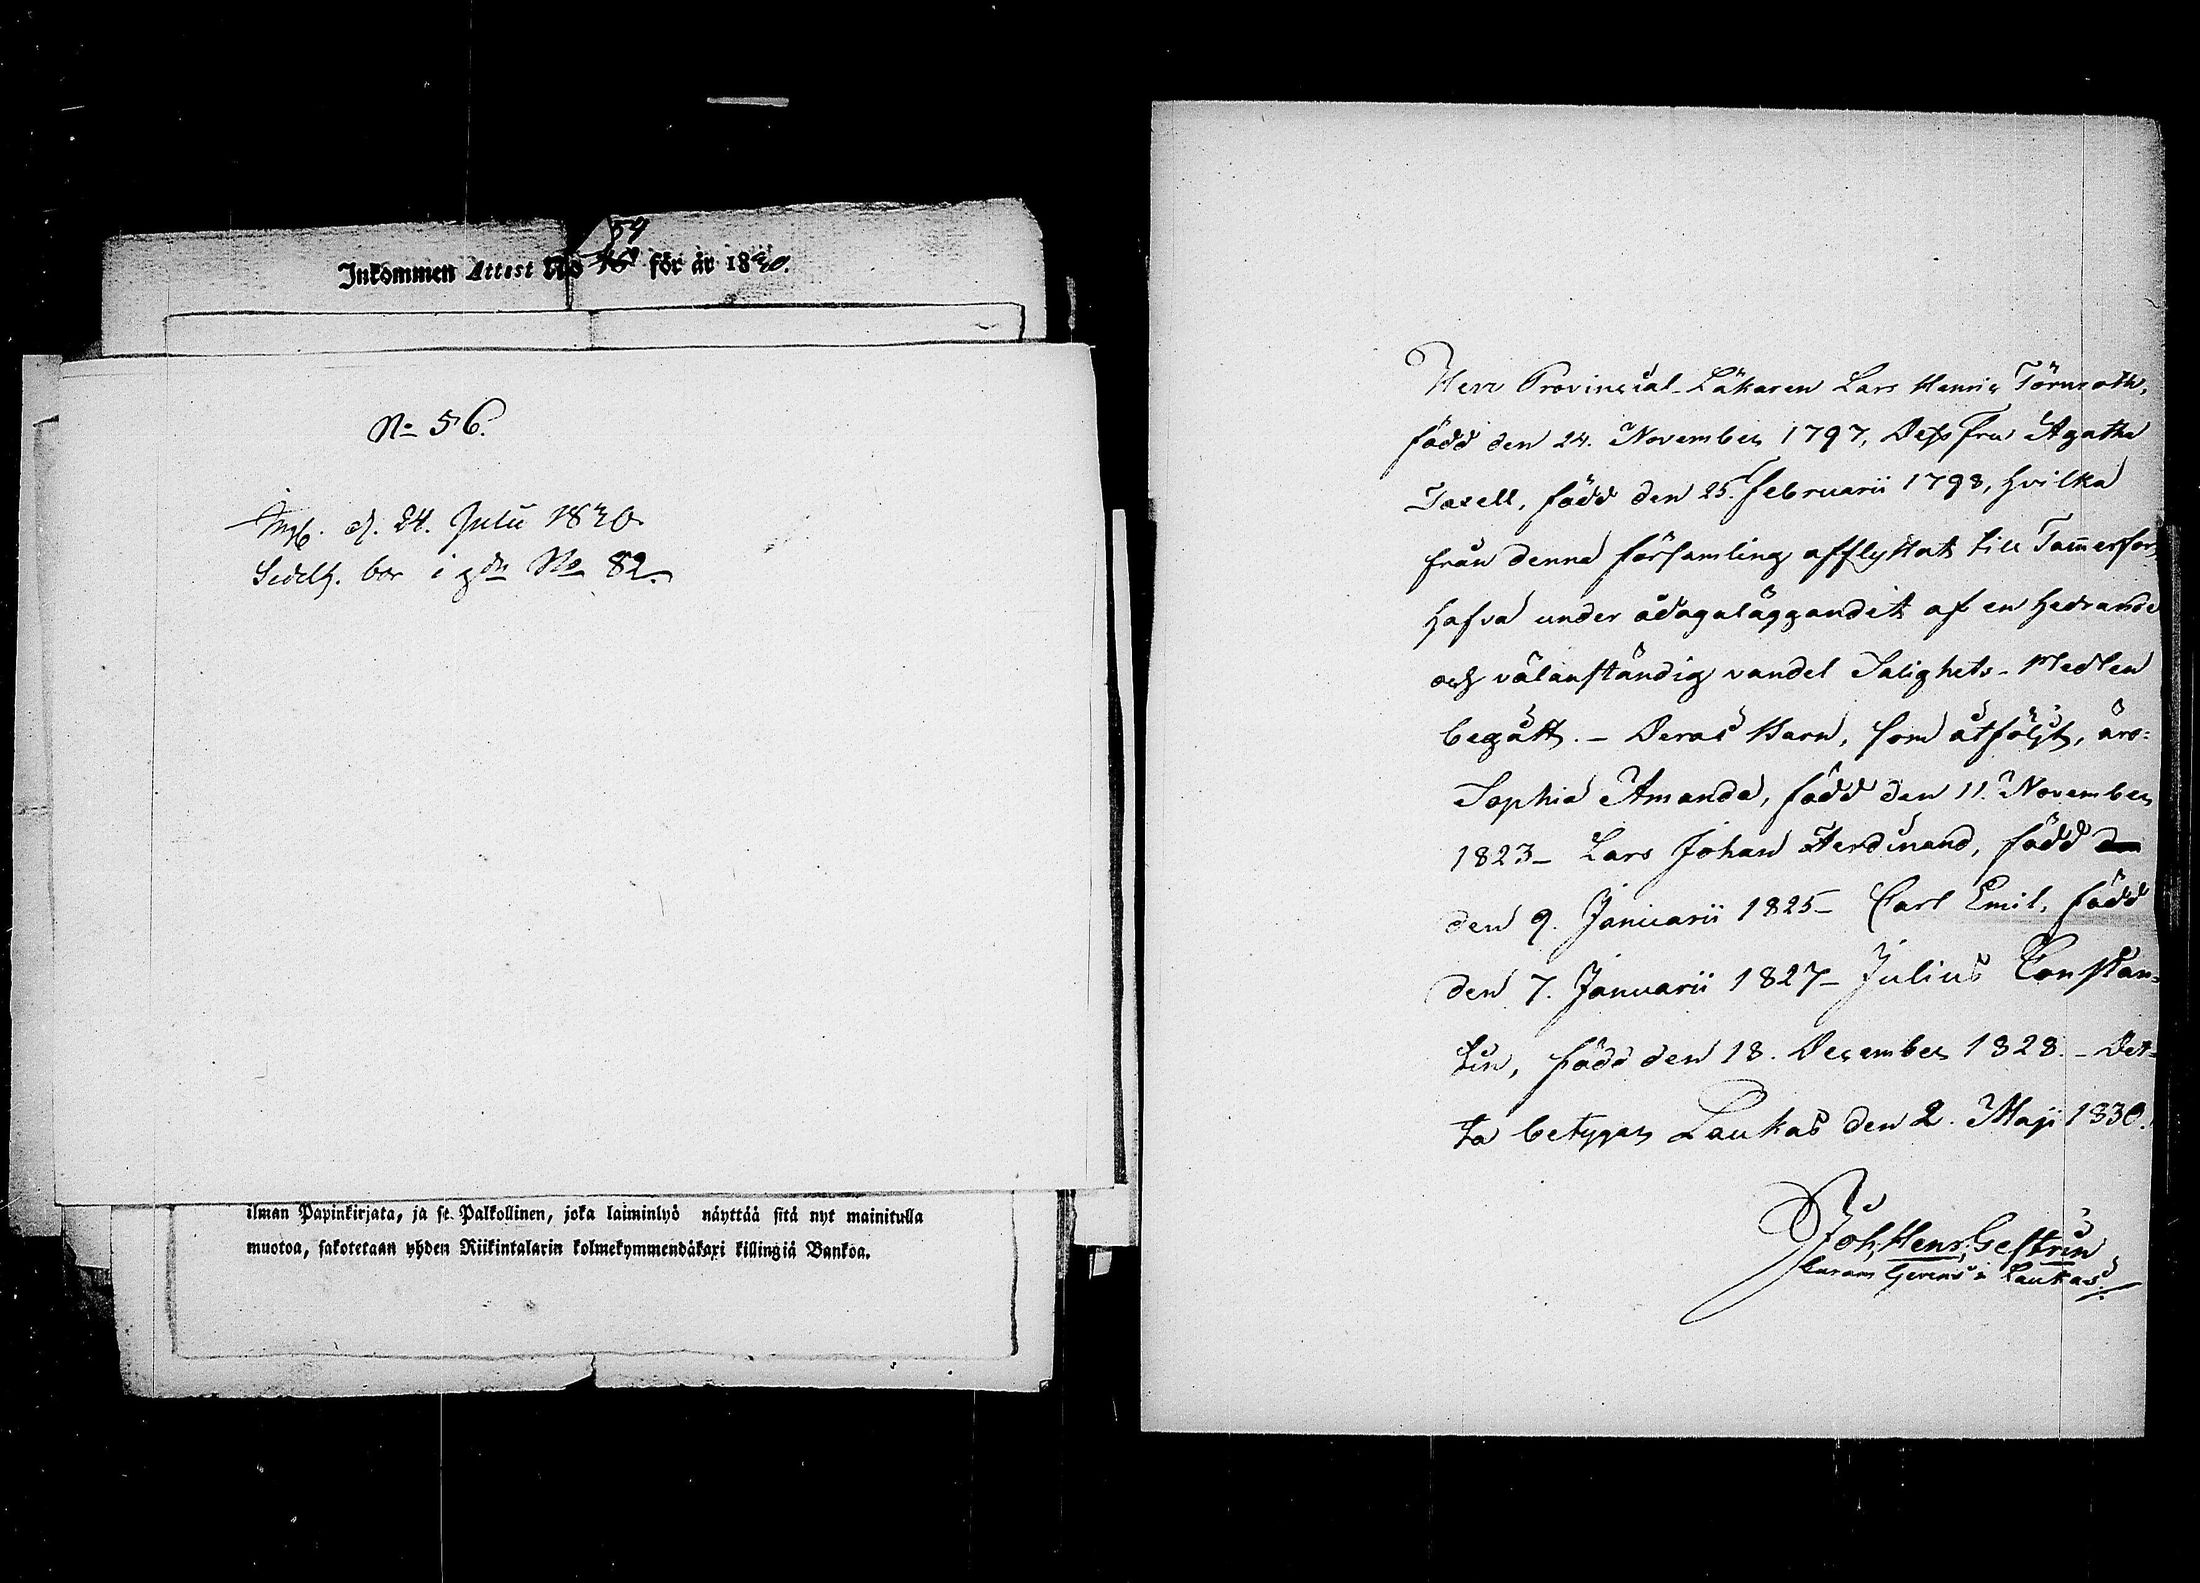 54
Inkommen Attest No för år 1830.
No 56.
Ink. d. 24. Julii 1830
Sedelh. bor i gdn No 82.
ilman Papinkirjata, ja se Palkollinen, joka laiminlyö näyttää sitä nyt mainitulla
muotoa, sakotetaan yhden Riikintalarin kolmekymmendäkaxi killingiä Bankoa.
Herr Provincial-Läkaren Lars Henric Törnroth,
född den 24. November 1797, Dess Fru Agatha
Taxell, född den 25. Februarii 1798, hvilka
från denna församling afflyttat till Tam̅erfors,
hafva under ådagaläggandet af en hedrande
och välanständig vandel Salighets-Medlen
begått. - Deras Barn, som åtföljt, äro:
Sophia Amanda, född den 11. November
1823 - Lars Johan Ferdinand, född
den 9. Januarii 1825 - Carl Emil, född
den 7. Januarii 1827 - Julius Constan-
tin, född den 18. December 1828. - Det-
ta betygar Laukas den 2. Maji 1830.
Joh. Henr. Gestrin
Curam Gerens i Laukas.